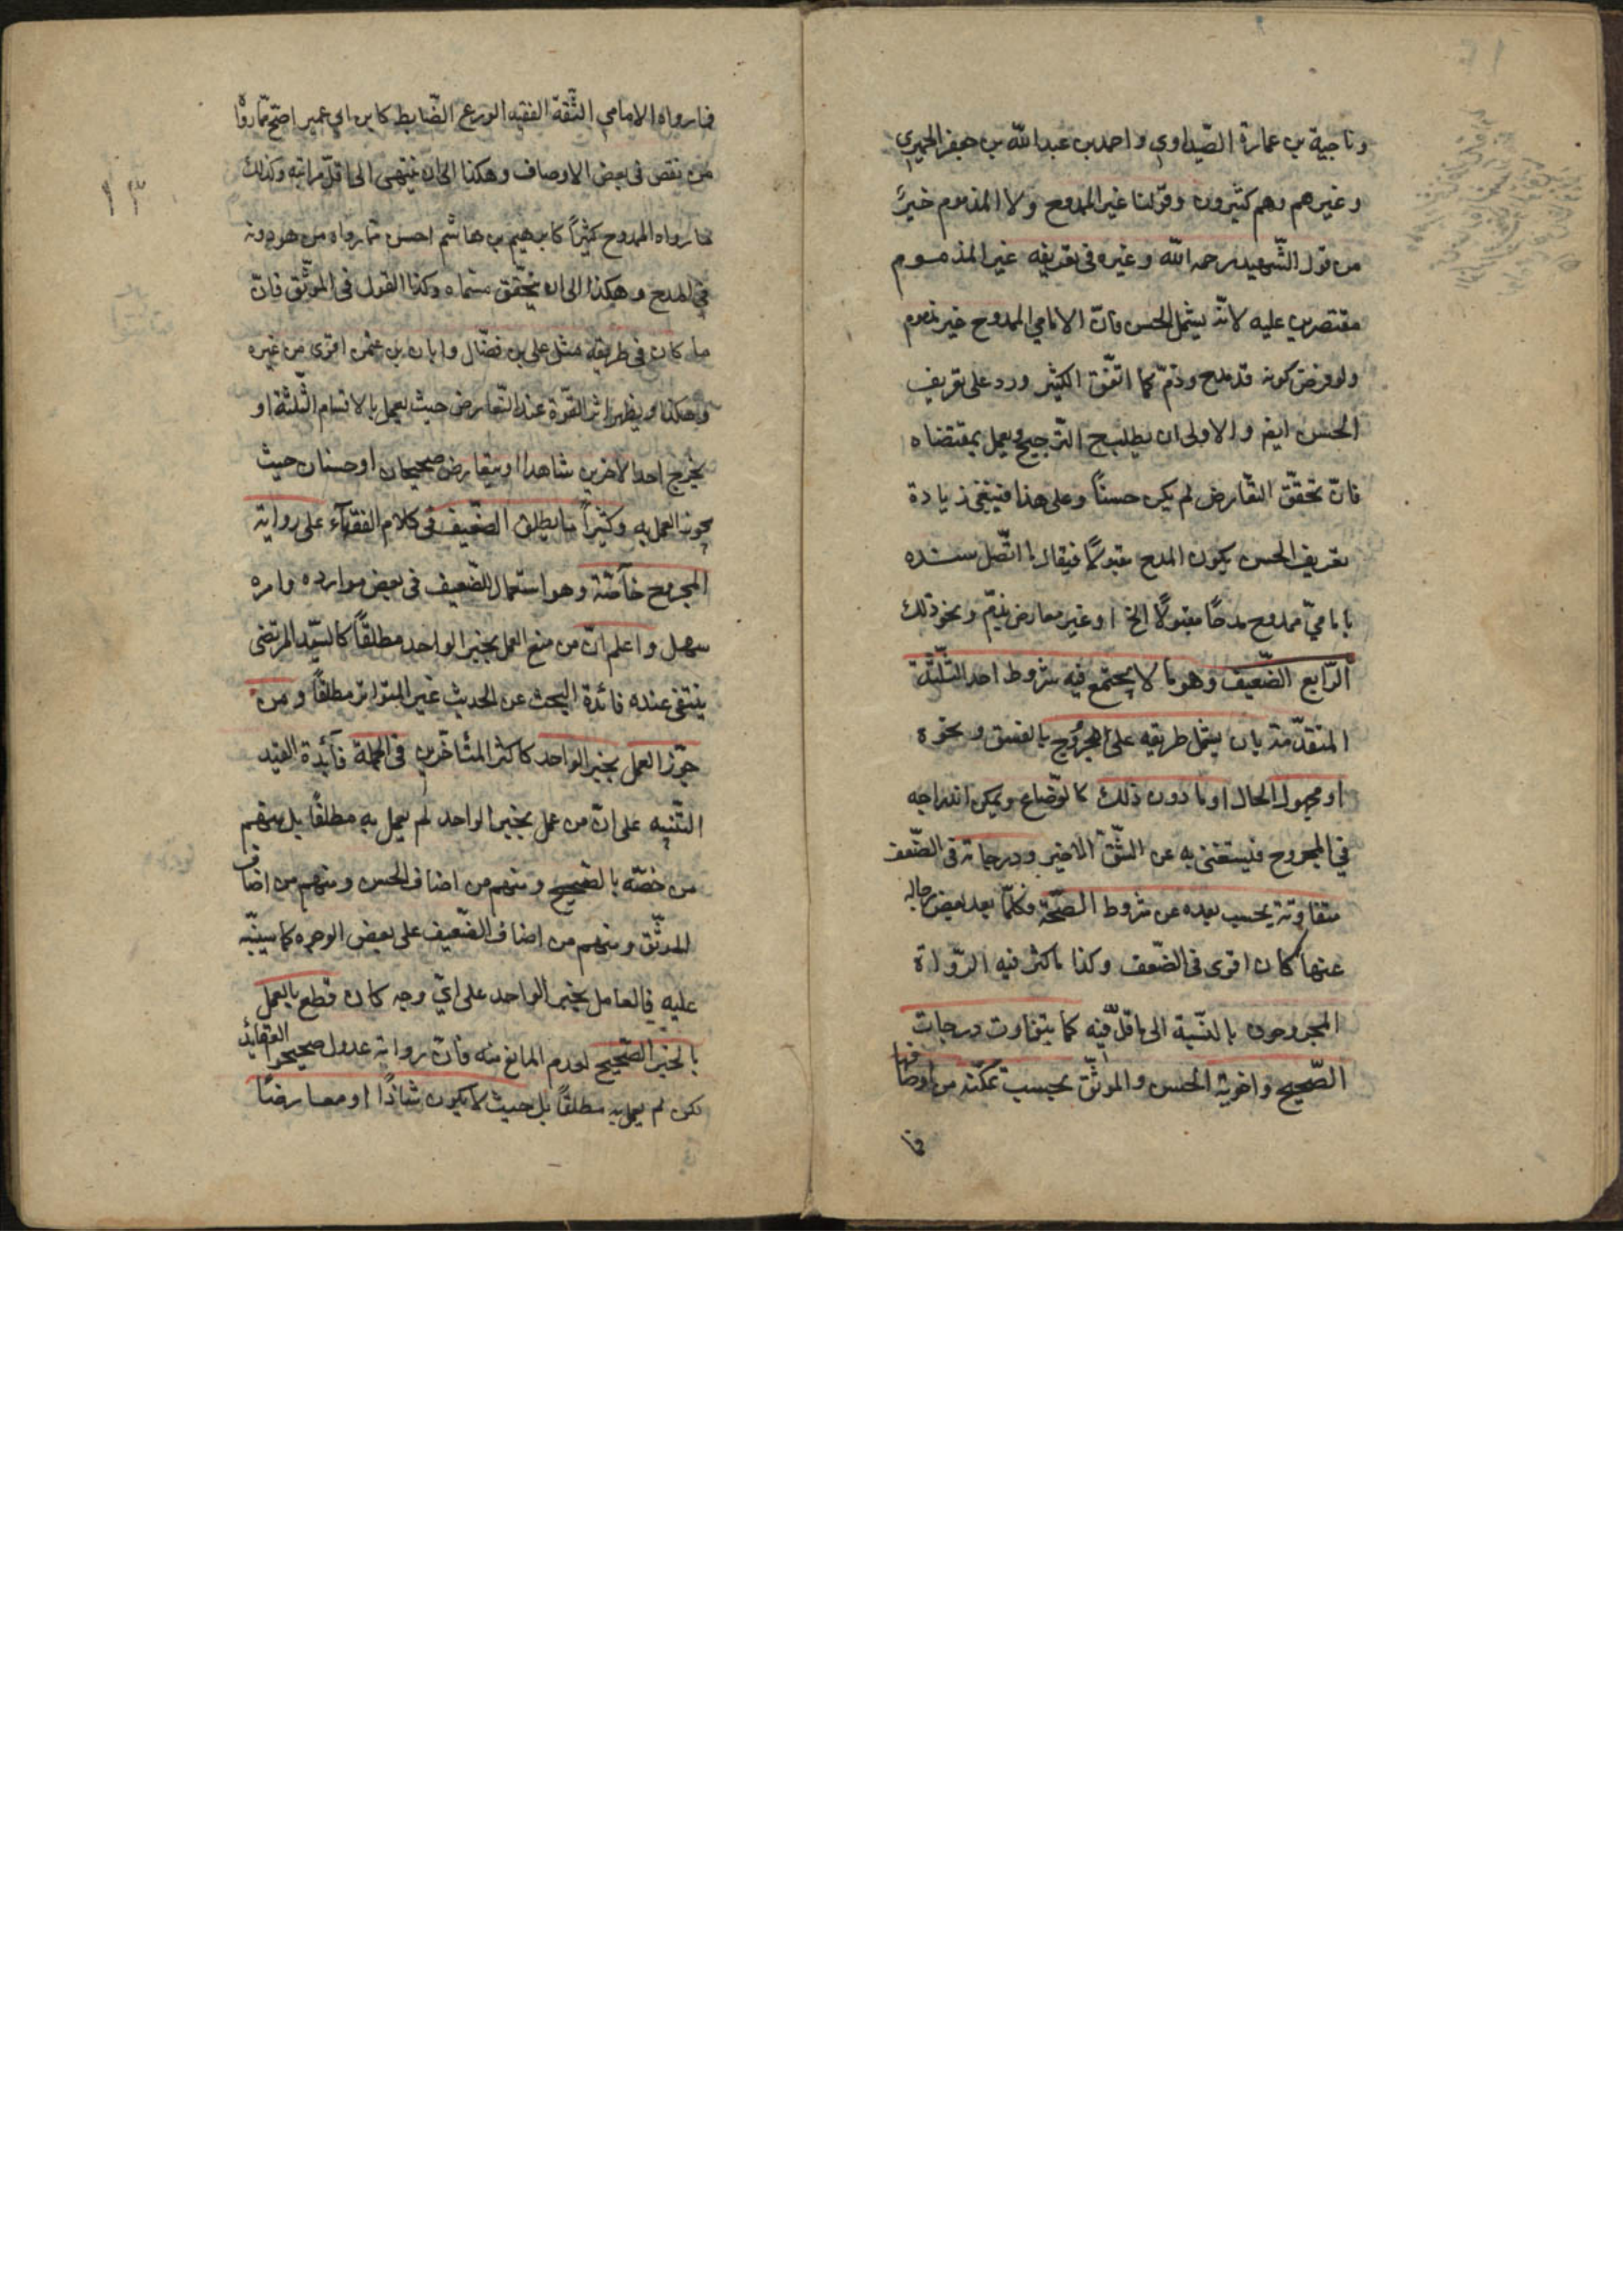 وناجية بن عمارة الصّيداوي واحمد بن عبد الله بن جعفر الحميري
وغيرهم وهم كثيرون وقولنا غير الممدوح ولا المذموم خيرٌ
من قول الشّهيد رحمه الله وغيره في تعريفه غير المذموم
مقتصرين عليه لانّه يشمل الحسن فانّ الامامي الممدوح غير مذموم
ولو فرض كونه قد مدح وذمّ كما اتّفق لكثير ورد على تعريف
الحسن ايضا والاولى ان يطلب ح التّرجيح ويعمل بمقتضاه
فانّ تحقّق التّعارض لم يكن حسنًا وعلى هذا فينبغي زيادة
تعريف الحسن بكون المدح مقبولًا فيقال ما اتّصل سنده
بامامي ممدوح مدحًا مقبولًا الخ او غير معارض بذمّ ونحو ذلك
الرّابع الضّعيف وهو ما لا يجتمع فيه شروط احد الثّلثة
المتقدّمة بان يشمل طريقه على المجروح بالفسق ونحوه
او مجهول الحال او ما دون ذلك كالوضّاع ويمكن اندراجه
في المجروح فيستغنى به عن الشّقّ الاخير ودرجاته في الضّعف
متفاوتة بحسب بعده عن شروط الصّحّة فكلّما بعد بعض رجاله
عنها كان اقوى في الضّعف وكذا ما كثر فيه الرّواة
المجروحون بالنّسبة الى ما قلّ فيه كما يتفاوت درجات
الصّحيح واخويه الحسن والموثّق بحسب تمكّنه من اوصافها
فما
١٣
فما رواه الامامي الثّقة الفقيه الورع الضّابط كابن ابي عمير اصحّ ممّا رواه
من نقص في بعض الاوصاف وهكذا الى ان ينتهي الى اقلّ مراتبه وكذلك
ما رواه الممدوح كثيرًا كابرهيم بن هاشم احسن ممّا رواه من هو دونه
في المدح وهكذا الى ان يتحقّق مسمّاه وكذا القول في الموثّق فانّ
ما كان في طريقه مثل علي بن فضّال وابان بن عثمن اقوى من غيره
وهكذا ويظهر اثر القوّة عند التّعارض حيث يعمل بالاقسام الثّلثة او
يخرج احد الاخرين شاهدا او يتعارض صحيحان او حسنان حيث
يجوز العمل به وكثيرًا ما يطلق الضّعيف في كلام الفقهآء على رواية
المجروح خآصّة وهو استعمال للضّعيف في بعض موارده وامره
سهل واعلم انّ من منع العمل بخبر الواحد مطلقًا كالسّيّد المرتضى
ينتفى عنده فائدة البحث عن الحديث غير المتواتر مطلقًا ومن
جوّز العمل بخبر الواحد كاكثر المتأخّرين في الجملة فآئدة القيد
التّنبيه على انّ من عمل بخبر الواحد لم يعمل به مطلقًا بل منهم
من خصّه بالصّحيح ومنهم من اضاف الحسن ومنهم من اضاف
الموثّق ومنهم من اضاف الضّعيف على بعض الوجوه كما سينبّه
عليه فالعامل بخبر الواحد على ايّ وجه كان قطع بالعمل
بالخبر الصّحيح لعدم المانع منه فانّ رواته عدول صحيحو العقائد
لكن لم يعمل به مطلقًا بل حيث لا يكون شاذًا او معارضًا